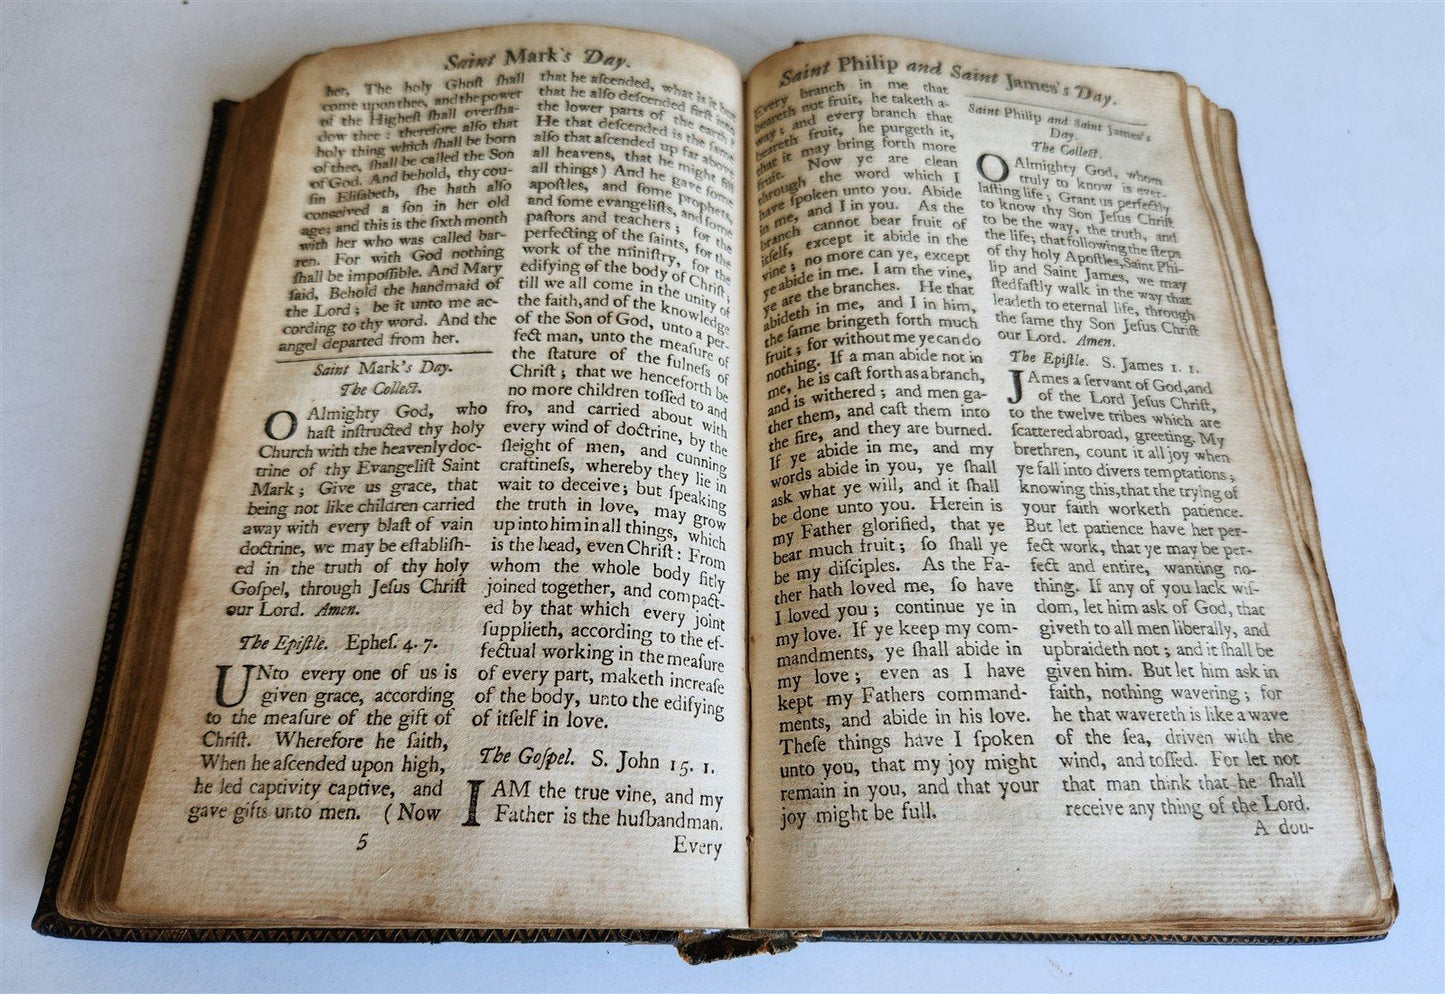 Saint Mark's Day.
her, The holy Ghoſt ſhall
come upon thee, and the power
of the Higheſt ſhall overſha-
dow thee : therefore alſo that
holy thing which ſhall be born
of thee, ſhall be called the Son
of God. And behold, thy cou-
ſin Eliſabeth, ſhe hath alſo
conceived a ſon in her old
age; and this is the ſixth month
with her who was called bar-
ren. For with God nothing
ſhall be impoſſible. And Mary
ſaid, Behold the handmaid of
the Lord ; be it unto me ac-
cording to thy word. And the
angel departed from her.
Saint Mark's Day.
The Collect.
O Almighty God, who
haſt inſtructed thy holy
Church with the heavenly doc-
trine of thy Evangeliſt Saint
Mark ; Give us grace, that
being not like children carried
away with every blaſt of vain
doctrine, we may be eſtabliſh-
ed in the truth of thy holy
Goſpel, through Jeſus Chriſt
our Lord. Amen.
The Epiſtle. Epheſ. 4. 7.
UNto every one of us is
given grace, according
to the meaſure of the gift of
Chriſt. Wherefore he ſaith,
When he aſcended upon high,
he led captivity captive, and
gave gifts unto men. ( Now
5
that he aſcended, what is it but
that he alſo deſcended firſt into
the lower parts of the earth ?
He that deſcended is the ſame
alſo that aſcended up far above
all heavens, that he might fill
all things ) And he gave ſome
apoſtles, and ſome prophets,
and ſome evangeliſts, and ſome
paſtors and teachers ; for the
perfecting of the ſaints, for the
work of the miniſtry, for the
edifying of the body of Chriſt;
till we all come in the unity of
the faith, and of the knowledge
of the Son of God, unto a per-
fect man, unto the meaſure of
the ſtature of the fulneſs of
Chriſt ; that we henceforth be
no more children toſſed to and
fro, and carried about with
every wind of doctrine, by the
ſleight of men, and cunning
craftineſs, whereby they lie in
wait to deceive; but ſpeaking
the truth in love, may grow
up into him in all things, which
is the head, even Chriſt : From
whom the whole body fitly
joined together, and compact-
ed by that which every joint
ſupplieth, according to the ef-
fectual working in the meaſure
of every part, maketh increaſe
of the body, unto the edifying
of itſelf in love.
The Goſpel. S. John 15. 1.
I AM the true vine, and my
Father is the huſbandman.
Every
Saint Philip and Saint James's Day.
Every branch in me that
beareth not fruit, he taketh a-
way ; and every branch that
beareth fruit, he purgeth it,
that it may bring forth more
fruit. Now ye are clean
through the word which I
have ſpoken unto you. Abide
in me, and I in you. As the
branch cannot bear fruit of
itſelf, except it abide in the
vine ; no more can ye, except
ye abide in me. I am the vine,
ye are the branches. He that
abideth in me, and I in him,
the ſame bringeth forth much
fruit ; for without me ye can do
nothing. If a man abide not in
me, he is caſt forth as a branch,
and is withered ; and men ga-
ther them, and caſt them into
the fire, and they are burned.
If ye abide in me, and my
words abide in you, ye ſhall
ask what ye will, and it ſhall
be done unto you. Herein is
my Father glorified, that ye
bear much fruit ; ſo ſhall ye
be my diſciples. As the Fa-
ther hath loved me, ſo have
I loved you ; continue ye in
my love. If ye keep my com-
mandments, ye ſhall abide in
my love ; even as I have
kept my Fathers command-
ments, and abide in his love.
Theſe things have I ſpoken
unto you, that my joy might
remain in you, and that your
joy might be full.
Saint Philip and Saint James's
Day.
The Collect.
O Almighty God, whom
truly to know is ever-
laſting life ; Grant us perfectly
to know thy Son Jeſus Chriſt
to be the way, the truth, and
the life; that following the ſteps
of thy holy Apoſtles, Saint Phi-
lip and Saint James, we may
ſtedfaſtly walk in the way that
leadeth to eternal life, through
the ſame thy Son Jeſus Chriſt
our Lord. Amen.
The Epiſtle. S. James 1. 1.
JAmes a ſervant of God, and
of the Lord Jeſus Chriſt,
to the twelve tribes which are
ſcattered abroad, greeting. My
brethren, count it all joy when
ye fall into divers temptations ;
knowing this, that the trying of
your faith worketh patience.
But let patience have her per-
fect work, that ye may be per-
fect and entire, wanting no-
thing. If any of you lack wiſ-
dom, let him ask of God, that
giveth to all men liberally, and
upbraideth not ; and it ſhall be
given him. But let him ask in
faith, nothing wavering ; for
he that wavereth is like a wave
of the ſea, driven with the
wind, and toſſed. For let not
that man think that he ſhall
receive any thing of the Lord.
A dou-